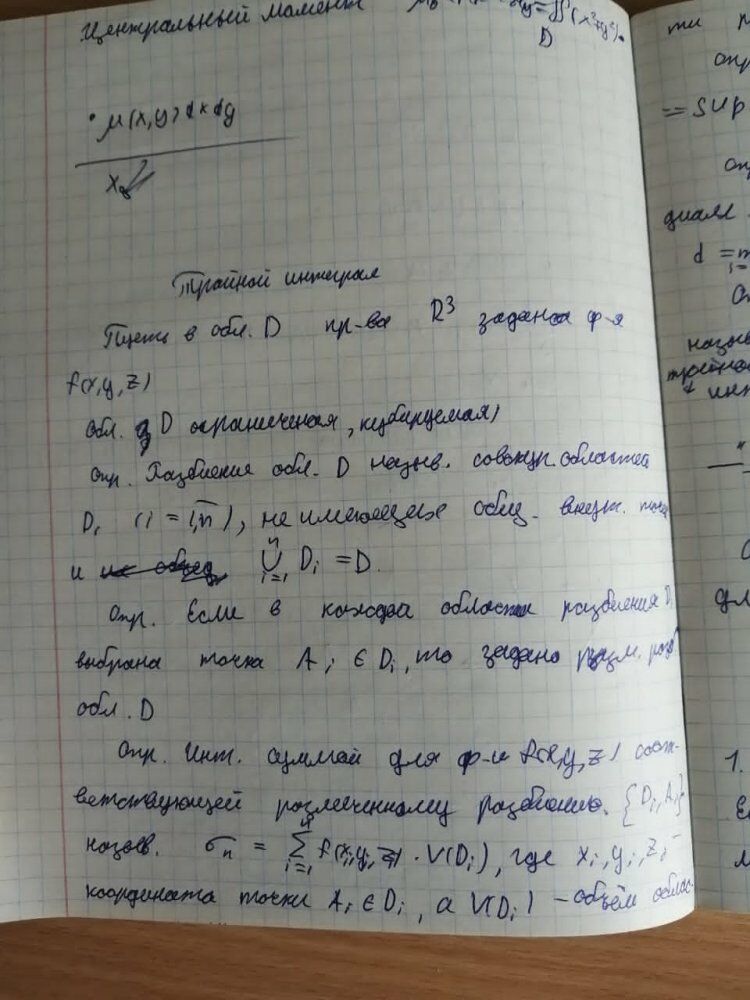 Центральный момент ∬(x²+y²)·
D
· μ(x,y) dx dy
Тройной интеграл
Пусть в обл. D пр-ва R³ задана ф-я
f(x,y,z)
Обл. D ограниченная, кубируемая)
Опр. Разбиения обл. D назыв. совокуп. областей
Dᵢ (i = 1,n̅), не имеющих общ. внутр. точек
и ⋃ᵢ₌₁ⁿ Dᵢ = D.
Опр. Если в каждой области разбиения Dᵢ
выбрана точка Aᵢ ∈ Dᵢ, то задано разм. разб.
обл. D
Опр. Инт. суммой для ф-и f(x,y,z) соот-
ветствующей размеченному разбиению. {Dᵢ, Aᵢ}
назыв. σₙ = ∑ᵢ₌₁ⁿ f(xᵢ,yᵢ,zᵢ) · V(Dᵢ), где xᵢ, yᵢ, zᵢ –
координата точки Aᵢ ∈ Dᵢ, а V(Dᵢ) – объём облас-
ти
опр
= sup
оп
диам
d = m
i=
О
назыв
тройно
инт
дл
1.